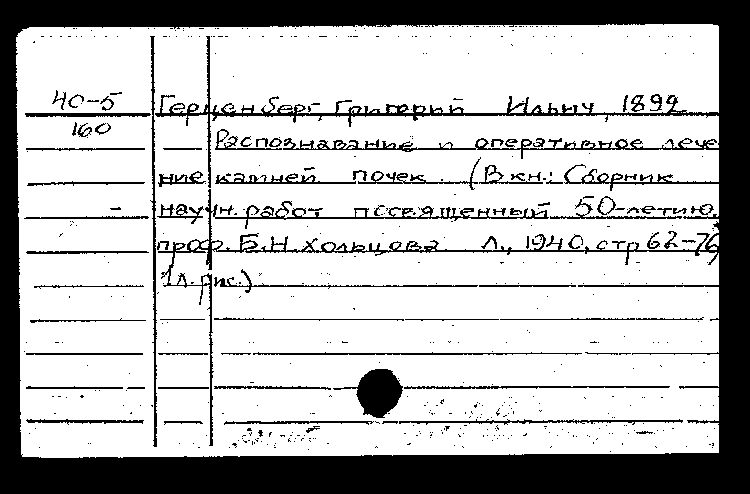 40-5 Герценберг, Григорий Ильич, 1892
160
Распознавание и оперативное лече
ние камней почек. (В кн.: Сборник
- научн. работ посвященный 50-летию
проф. Б.Н. Хольцова Л., 1940, стр 62-76
1 л. рис.)